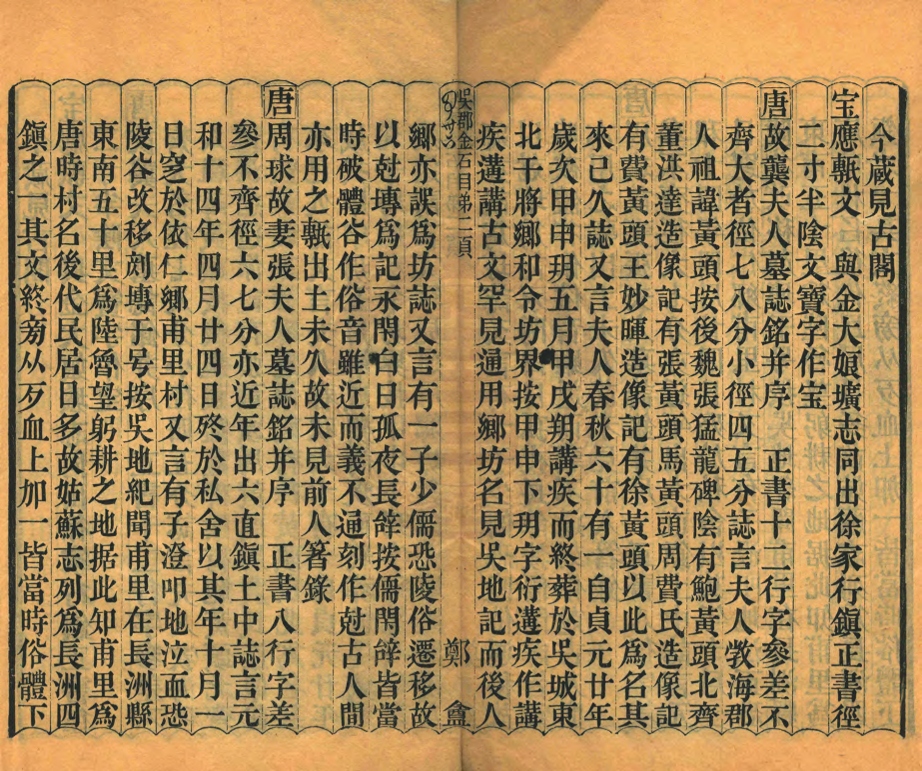 今蔵見古閣
宝應甎文 與金大娘壙志同出徐家行鎮正書徑
二寸半陰文寶字作宝
唐故龔夫人墓誌銘并序 正書十二行字參差不
齊大者徑七八分小徑四五分誌言夫人敩海郡
人祖諱黃頭按後魏張猛龍碑陰有鮑黃頭北齊
董洪達造像記有張黃頭馬黃頭周費氏造像記
有費黃頭王妙暉造像記有徐黃頭以此爲名其
來已久誌又言夫人春秋六十有一自貞元廿年
歲次甲申玥五月甲戌朔講疾而終葬於吳城東
北干將鄉和令坊界按甲申下玥字衍遘疾作講
疾遘講古文罕見通用鄉坊名見吳地記而後人
吳郡金石目苐二頁 鄭盦
鄉亦誤爲坊誌又言有一子少儒恐陵俗遷移故
以尅塼爲記永閇白日孤夜長辝按儒閇辝皆當
時破體谷作俗音雖近而義不通刻作尅古人閒
亦用之甎出土未久故未見前人箸錄
唐周球故妻張夫人墓誌銘并序 正書八行字差
參不齊徑六七分亦近年出六直鎮土中誌言元
和十四年四月廿四日終於私舍以其年十月一
日窆於依仁鄉甫里村又言有子澄叩地泣血恐
陵谷改移剠塼于号按吳地紀聞甫里在長洲縣
東南五十里爲陸魯望躬耕之地据此知甫里爲
唐時村名後代民居日多故姑蘇志列爲長洲四
鎮之一其文終旁从歹血上加一皆當時俗體下